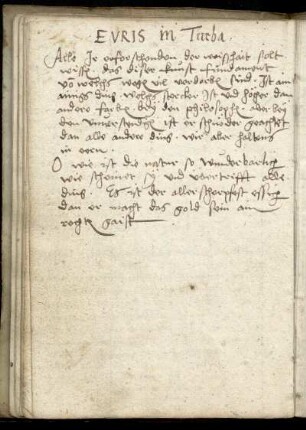 EVRIS in Turba
Alle Ir erforschenden der weisshait solt
wissen das diser kunst fundament
von welches wegen vil verdorben sind. Ist ain
ainigs ding welchs stercker ist und höher dan
andere bey den philosophi aber bey
den unverstendigen ist er schnöder geachtet
dan alle andere ding wir aber haltens
in eeren
O wie ist die natur so wunderbarlich
wie scheinet sy und übertrifft alle
ding. Es ist der aller scherpfest essig
dan er macht das gold sein ain
rechter gaist